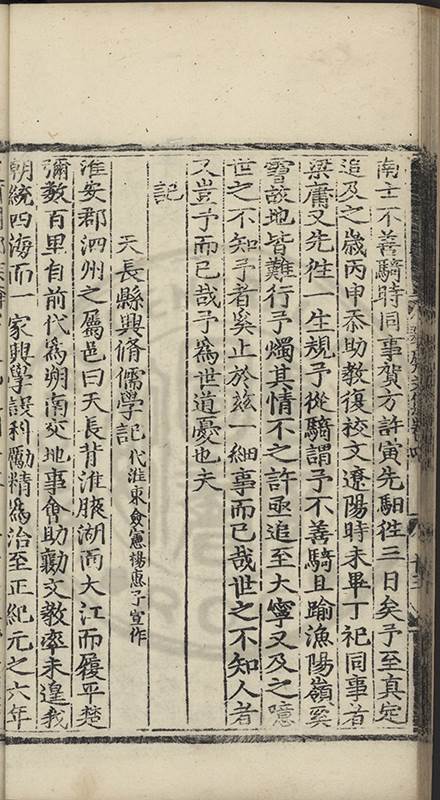 南士不善騎時同事賀方許寅先馹徃三日矣予至真定
追及之歲丙申忝助教復校文遼陽時未畢丁祀同事者
梁庸又先徃一生規予從騎謂予不善騎且踰漁陽嶺奚
霫故地皆難行予燭其情不之許亟追至大寧又及之噫
世之不知予者奚止於兹一細事而已哉世之不知人者
又豈予而已哉予爲世道憂也夫
記
天長縣興脩儒學記代淮東僉憲楊惠子宣作
淮安郡泗州之屬邑曰天長背淮腋湖面大江而履平楚
彌數百里自前代爲朔南交地事會助勷文教率未遑我
朝統四海而一家興學設科勵精爲治至正紀元之六年